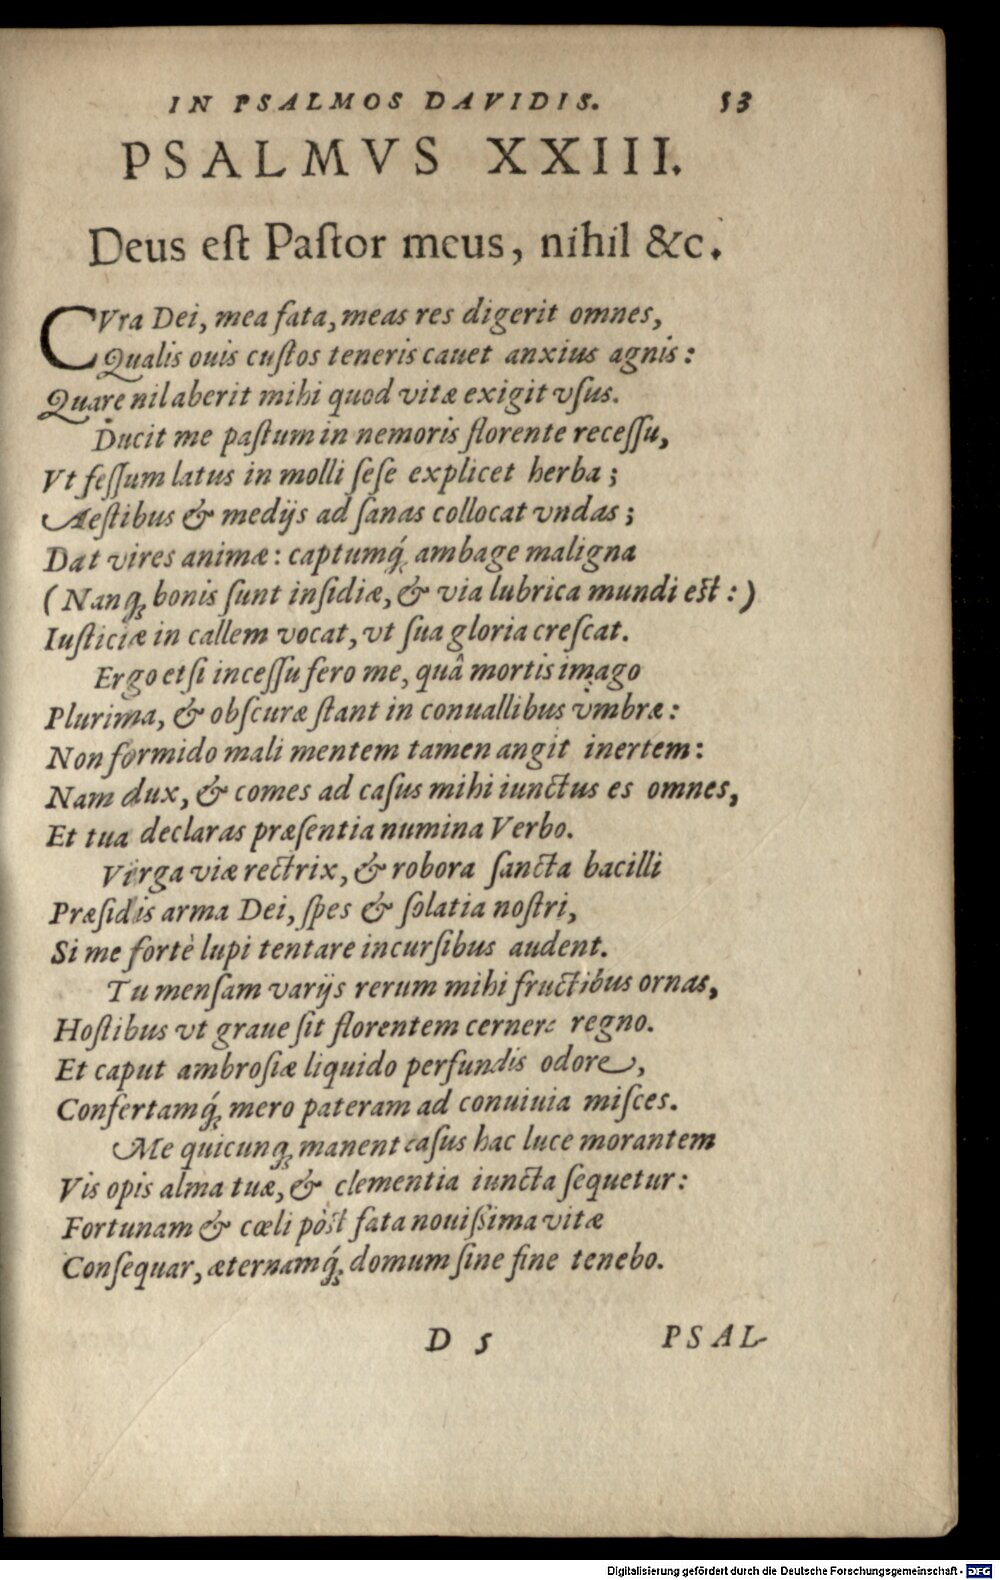 IN PSALMOS DAVIDIS. 53
PSALMVS XXIII.
Deus eſt Paſtor meus, nihil &c.
CVra Dei, mea fata, meas res digerit omnes,
Qualis ouis cuſtos teneris cauet anxius agnis:
Quare nil aberit mihi quod vitæ exigit vſus.
Ducit me paſtum in nemoris florente receſſu,
Vt feſſum latus in molli ſeſe explicet herba;
Aeſtibus & medijs ad ſanas collocat vndas;
Dat vires animæ: captumq́ꝫ ambage maligna
(Nanqꝫ bonis ſunt inſidiæ, & via lubrica mundi eſt:)
Iuſticiæ in callem vocat, vt ſua gloria creſcat.
Ergo etſi inceſſu fero me, quâ mortis imago
Plurima, & obſcuræ ſtant in conuallibus vmbræ:
Non formido mali mentem tamen angit inertem:
Nam dux, & comes ad caſus mihi iunctus es omnes,
Et tua declaras præſentia numina Verbo.
Virga viæ rectrix, & robora ſancta bacilli
Præſidis arma Dei, ſpes & ſolatia noſtri,
Si me fortè lupi tentare incurſibus audent.
Tu menſam varijs rerum mihi fructibus ornas,
Hoſtibus vt graue ſit florentem cernere regno.
Et caput ambroſiæ liquido perfundis odore,
Confertamq́ꝫ mero pateram ad conuiuia miſces.
Me quicunqꝫ manent caſus hac luce morantem
Vis opis alma tuæ, & clementia iuncta ſequetur:
Fortunam & cœli pòſt fata nouiſsima vitæ
Conſequar, æternamq́ꝫ domum ſine fine tenebo.
D 5 PSAL-
Digitalisierung gefördert durch die Deutsche Forschungsgemeinschaft - DFG